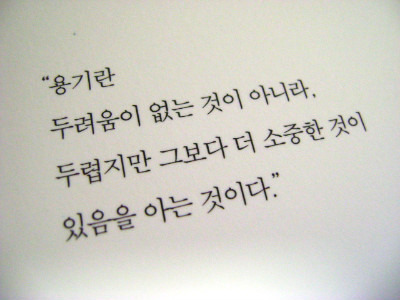 “용기란
두려움이 없는 것이 아니라,
두렵지만 그보다 더 소중한 것이
있음을 아는 것이다.”